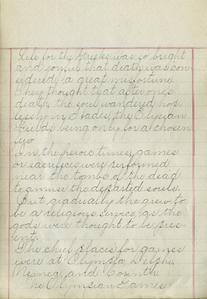 Life for the Greeks was so bright
and joyous that death was con
sidered a great misfortune
They thought that after ones
death the soul wandered hop
lessly in Hades, the Elysian
fields being only for a chosen
few
In the heroic times games
or sacrifices were performed
near the tombs of the dead
to amuse the departed souls.
But gradually they grew to
be a religious service, as the
gods were thought to be pres
ent.
The chief places for games
were at Olympia Delphi
Nemea, and Corinth
The Olympian Games